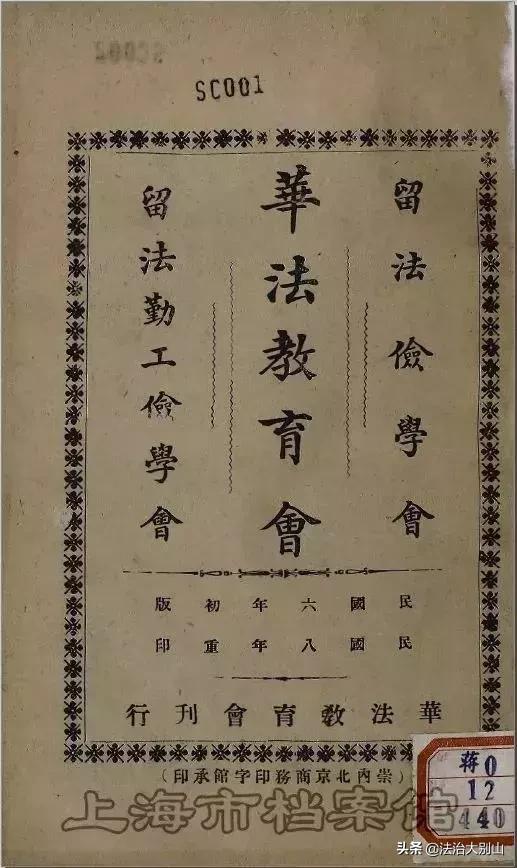 SC001
留法儉學會
華法教育會
留法勤工儉學會
民國六年初版
民國八年重印
華法教育會刊行
（崇內北京商務印字館承印）
蒋0
12
440
上海市档案馆
头条 @法治大别山